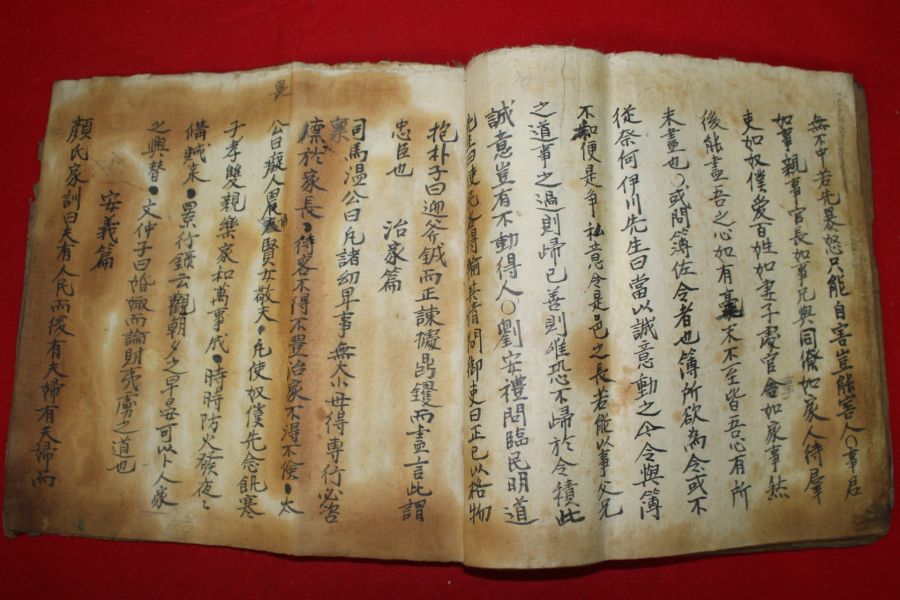 無不中若先暴怒只能自害豈能害人〇事君
如事親事官長如事兄與同僚如家人待羣
吏如奴僕愛百姓如妻子處官舍如家事然
後能盡吾之心如有毫末不至皆吾心有所
未盡也〇或問簿佐令者也簿所欲為令或不
從奈何伊川先生曰當以誠意動之今令與簿
不和便是争私意令是邑之長若能以事父兄
之道事之過則歸已善則唯恐不歸於令積此
誠意豈有不動得人〇劉安禮問臨民明道
先生曰使民各得輸其情問御吏曰正已以格物
抱朴子曰迎斧鉞而正諫據鼎鑊而盡言此謂
忠臣也 治家篇
司馬溫公曰凡諸幼卑事無大小毋得專行必咨
稟於家長●待客不得不豊治家不得不儉●太
畏
公曰癡人畏婦賢女敬夫●凡使奴僕先念飢寒
子孝雙親樂家和萬事成●時時防火發夜〻
備賊来●景行錄云觀朝夕之早晏可以卜人家
之興替●文仲子曰婚娶而論財夷虜之道也
安義篇
顔氏家訓曰夫有人民而後有夫婦有夫婦而